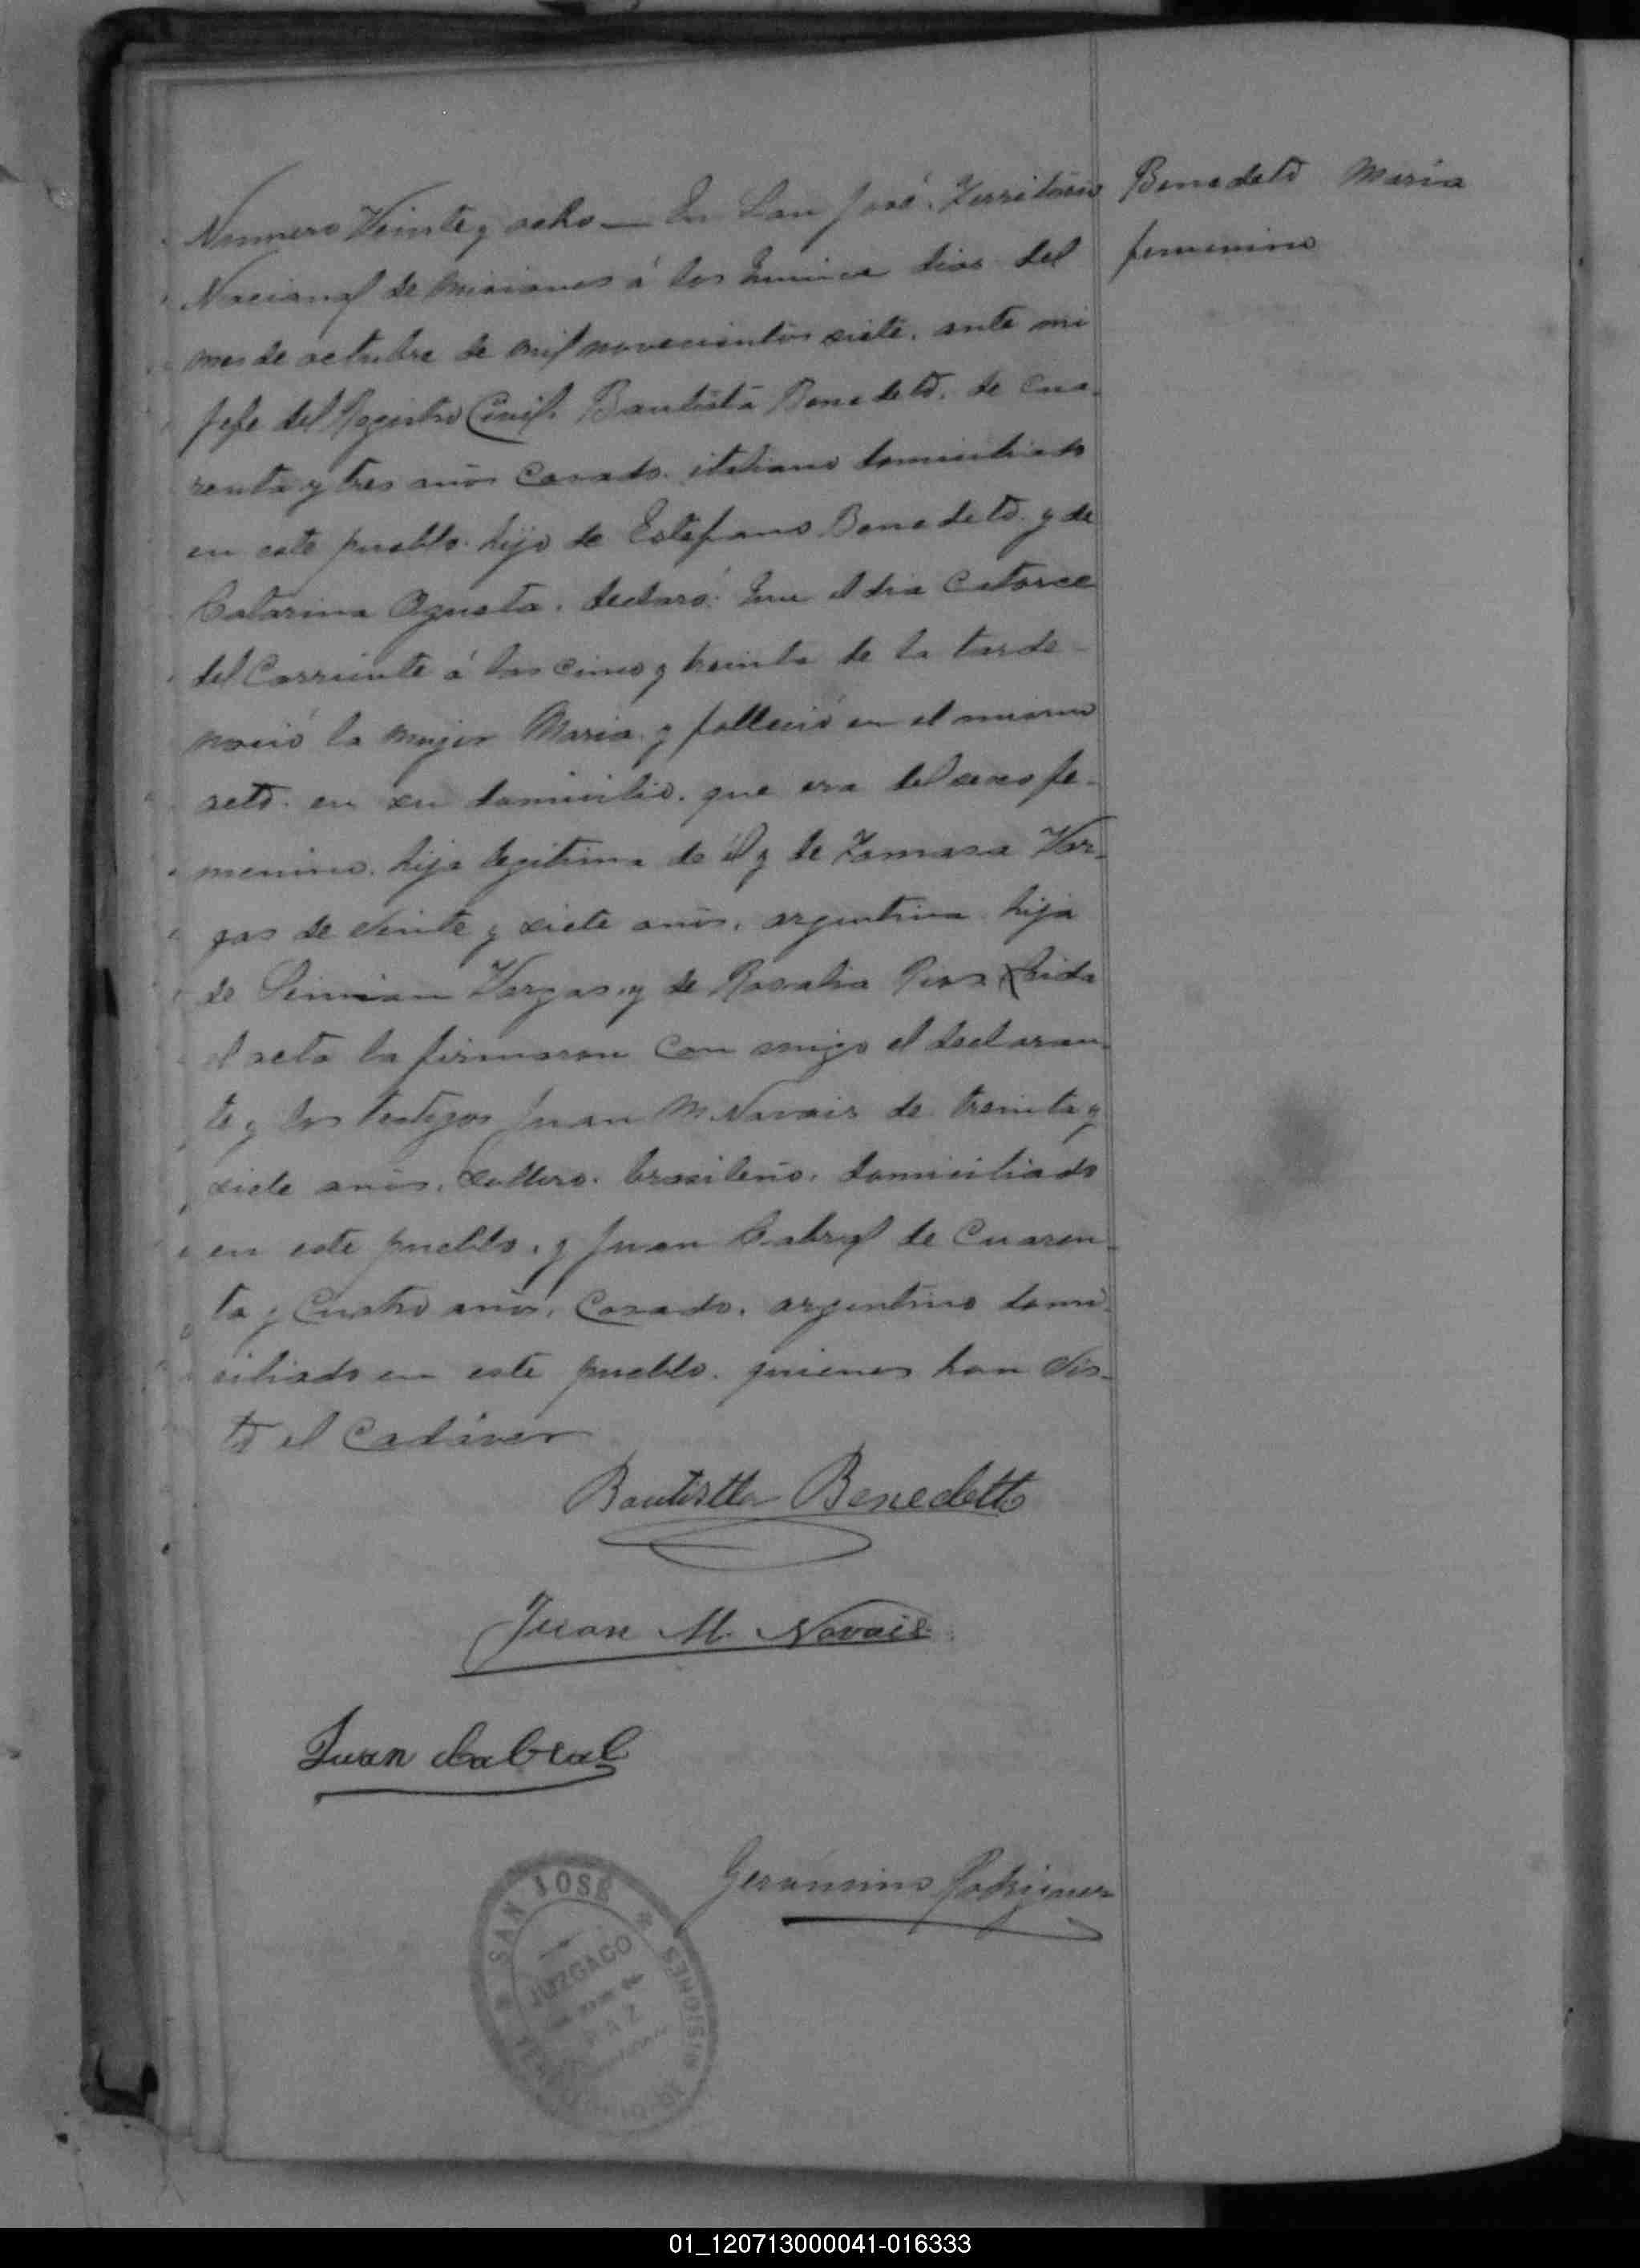 Numero Veinte y ocho — En San José. Territorio
Nacional de Misiones á los quince dias del
mes de octubre de mil novecientos siete. ante mi
Jefe del Registro Civil. Bautista Benedeto. de cua-
renta y tres años casado. italiano domiciliado
en este pueblo. hijo de Estefano Benedeto. y de
Catarina Agusta. declaró: que el dia catorce
del corriente á las cinco y treinta de la tarde
nació la mujer Maria y falleció en el mismo
acto. en su domicilio. que era del sexo fe-
menino. hija legitima de él y de Tomasa Var-
gas de veinte y siete años, argentina hija
de Vargas. y de Rosalia leida
el acta la firmaron con migo el declaran-
te y los testigos Juan M. Navais de treinta y
siete años, soltero. brasileño. domiciliado
en este pueblo. y Juan Cabral de cuaren-
ta y cuatro años, casado. argentino domi-
ciliado en este pueblo. quienes han vis-
to el cadáver
Benedeto Maria
femenino
Bautistta Benedetto
Juan M. Navais
Juan Cabral
Geronimo Rodriguez
SAN JOSÉ
JUZGADO
DE
PAZ
MISIONES
01_120713000041-016333